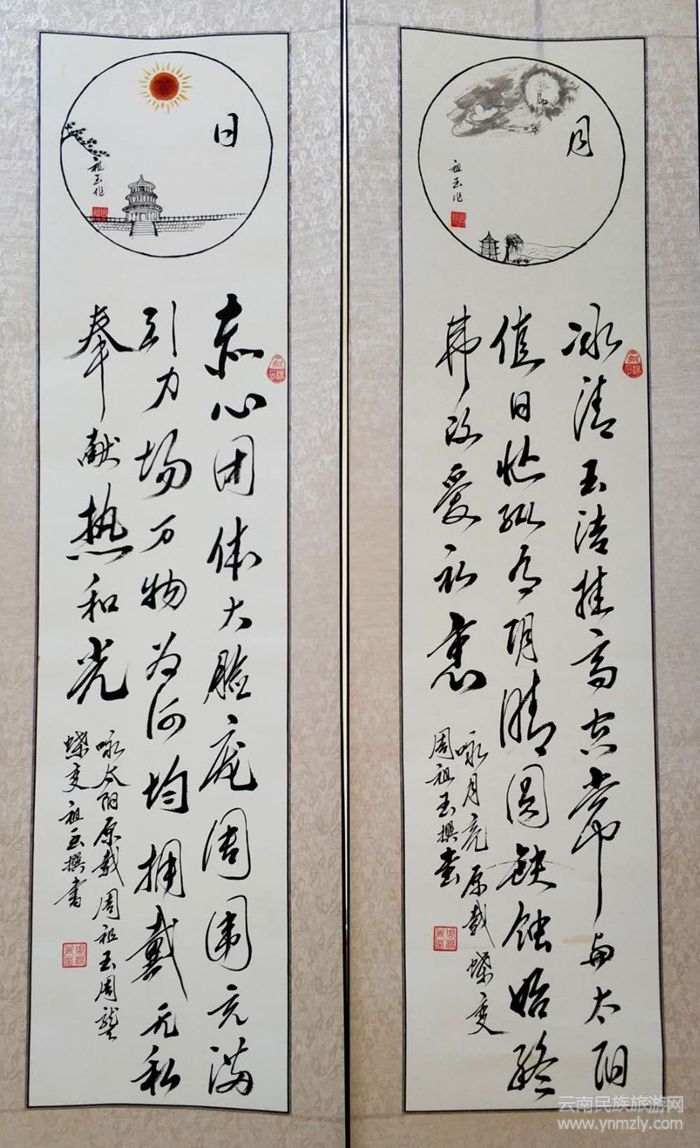 日
祖玉作
赤心团体大脸庞周围充满
引力场万物为何均拥戴无私
奉献热和光
咏太阳原载周祖玉周龚
蝶变祖玉撰书
月
祖玉作
冰清玉洁挂高空常与太阳
值日忙纵有阴晴圆缺蚀始终
弗改爱初衷
咏月亮原载蝶变
周祖玉撰书
云南民族旅游网
www.ynmzly.com